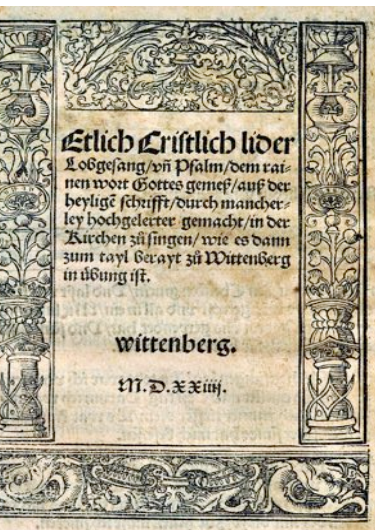 Etlich Cristlich lider
Lobgesang/vñ Psalm/dem rai-
nen wort Gottes gemeß/auß der
heyligē schrifft/durch mancher-
ley hochgelerter gemacht/in der
Kirchen zů singen/wie es dann
zum tayl berayt zů Wittenberg
in übung ist.
wittenberg.
M.D.XXiiij.